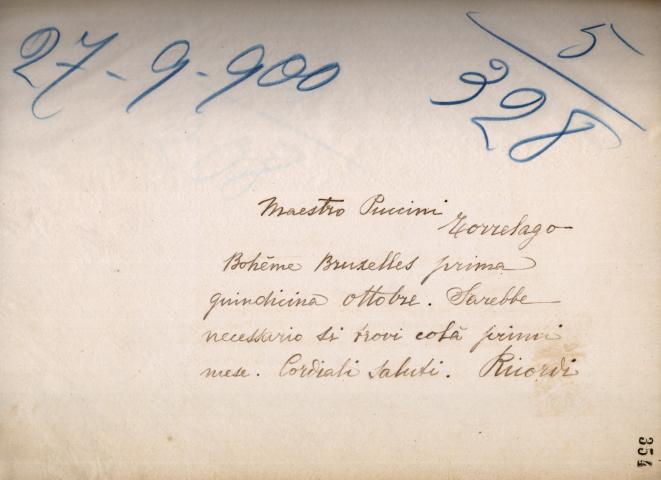 27-9-900
5/328
Maestro Puccini
Torrelago
Bohême Bruxelles prima
quindicina ottobre. Sarebbe
necessario si trovi colà primi
mese. Cordiali saluti. Ricordi
354